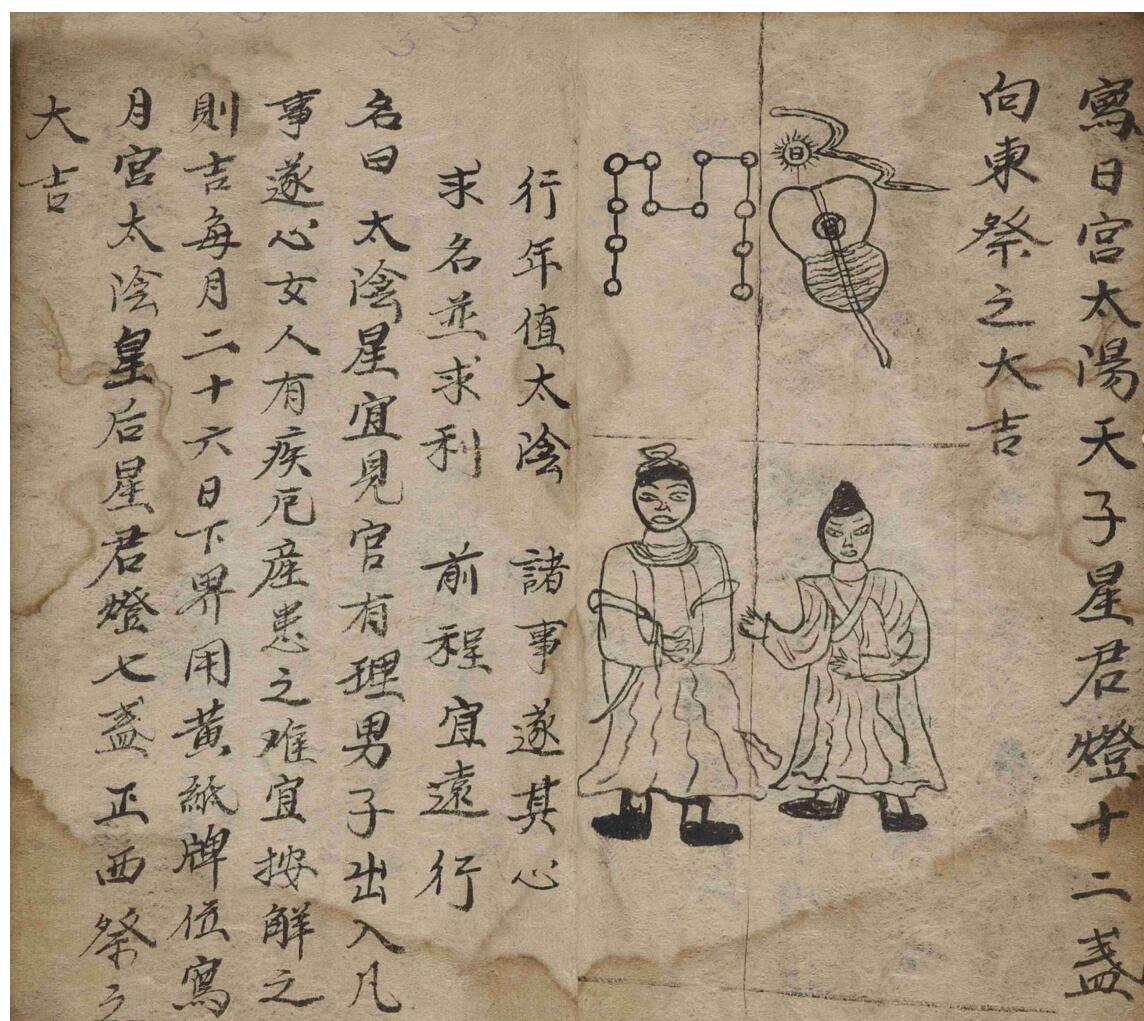 寫日宮太陽天子星君燈十二盞
向東祭之大吉
日
行年值太陰 諸事遂其心
求名並求利 前程宜遠行
名曰太陰星宜見官有理男子出入凡
事遂心女人有疾厄產患之难宜按解之
則吉每月二十六日下界用黃紙牌位寫
月宮太陰皇后星君燈七盞正西祭之
大吉